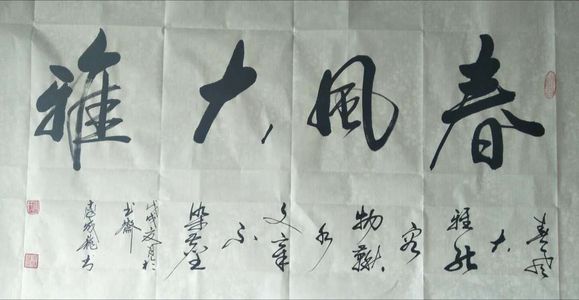 春風大雅
春風
大
雅能
容
物秋
水
文章
不
染塵
戊戌夏月於
書齋